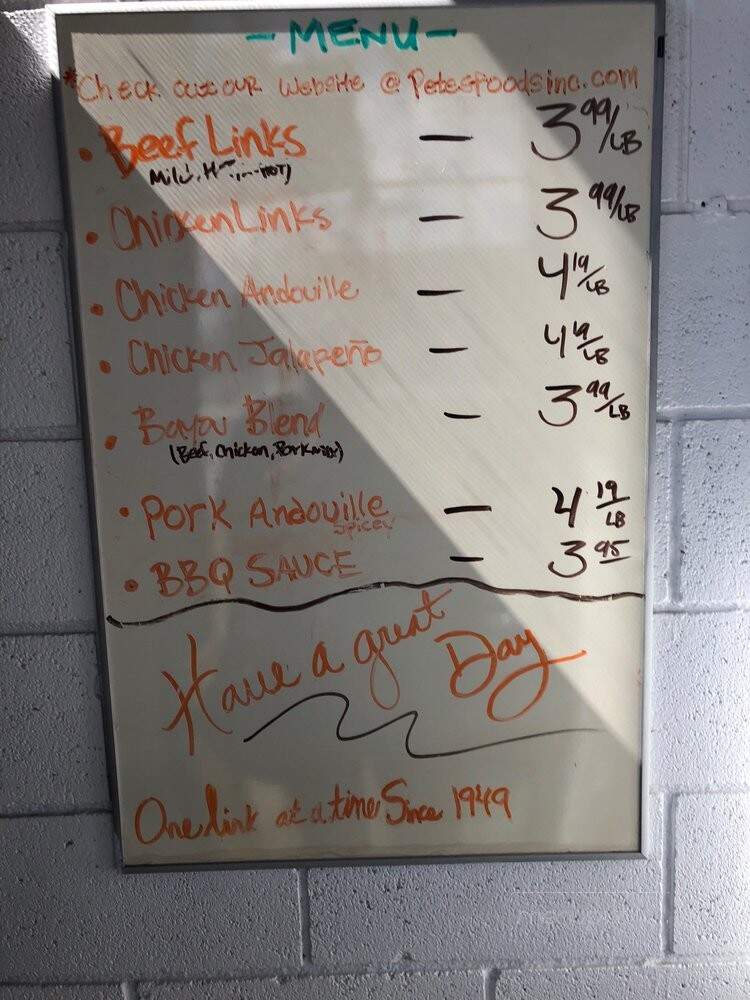 - MENU -
*Check out our Website @ Petesfoodsinc.com
• Beef Links — 3 99/LB
Mild, HOT)
• Chicken Links — 3 99/LB
• Chicken Andouille — 4 19/LB
• Chicken Jalapeño — 4 19/LB
• Bayou Blend — 3 99/LB
(Beef, Chicken, Pork mix)
• Pork Andouille — 4 19/LB
Spicey
• BBQ SAUCE — 3 95
Have a great Day
One link at a time Since 1949